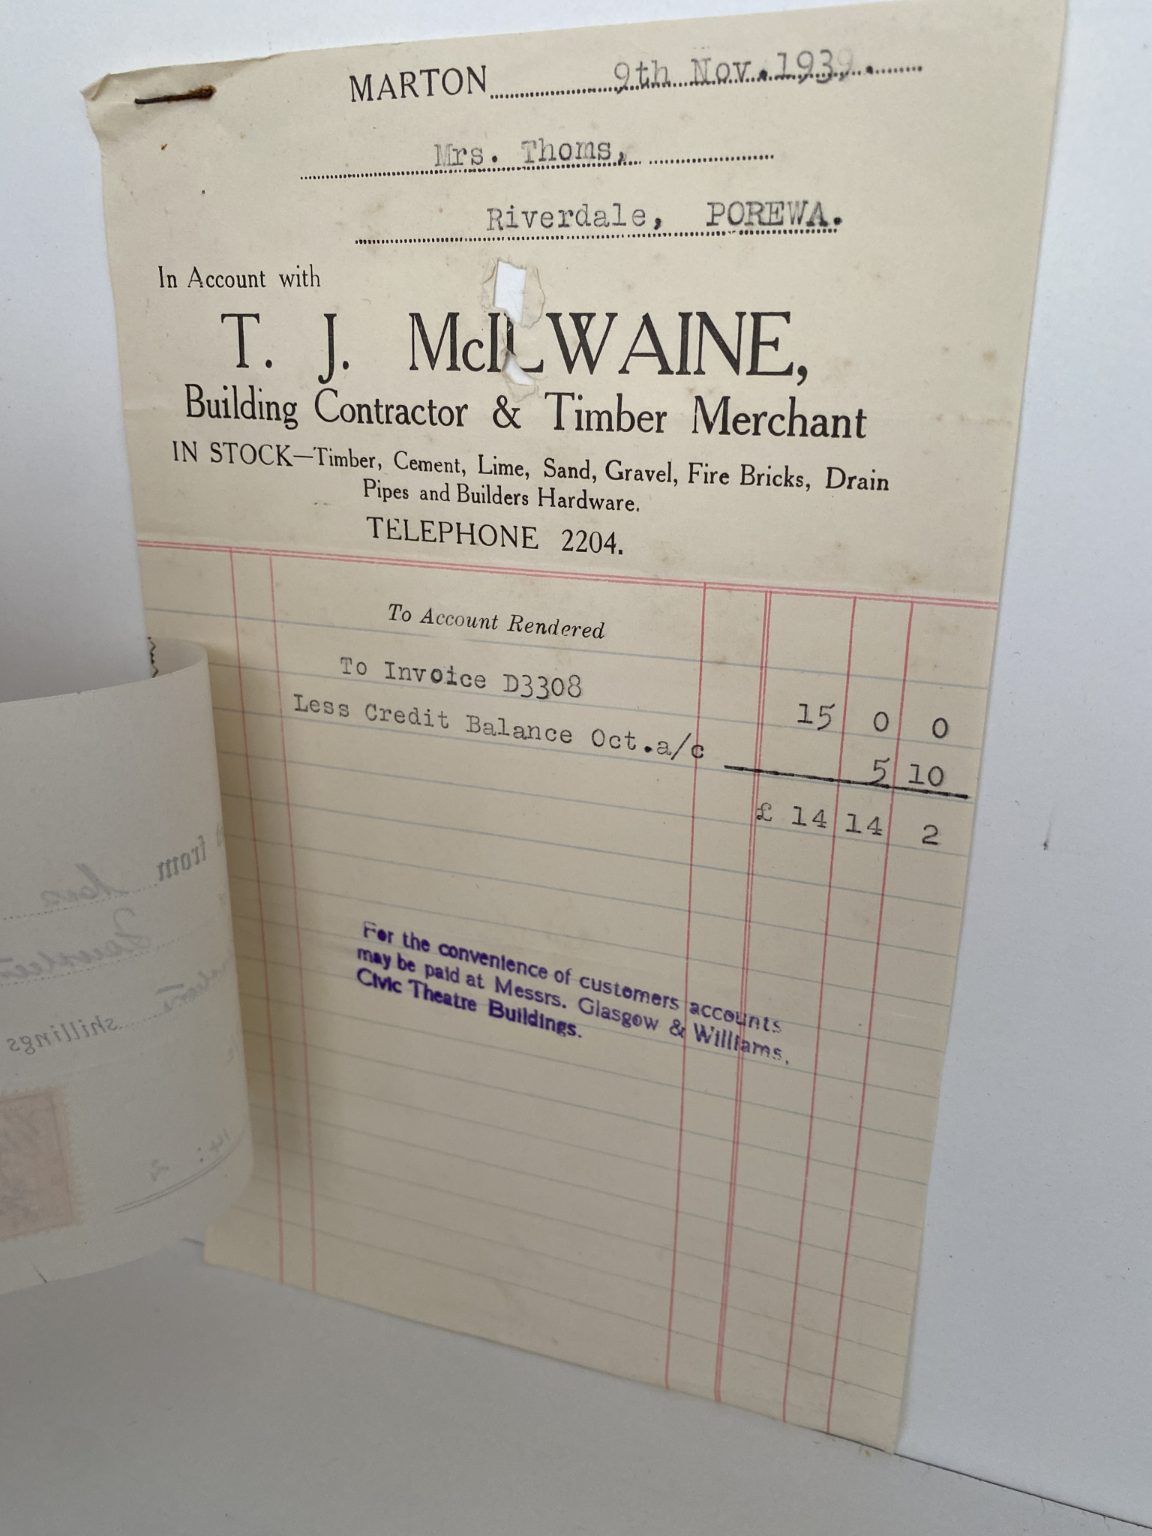 MARTON 9th Nov. 1939.
Mrs. Thoms,
Riverdale, POREWA.
In Account with
T. J. McILWAINE,
Building Contractor & Timber Merchant
IN STOCK—Timber, Cement, Lime, Sand, Gravel, Fire Bricks, Drain
Pipes and Builders Hardware.
TELEPHONE 2204.
To Account Rendered
To Invoice D3308 15 0 0
Less Credit Balance Oct.a/c 5 10
£ 14 14 2
For the convenience of customers accounts
may be paid at Messrs. Glasgow & Williams,
Civic Theatre Buildings.
from
shillings
14: 2